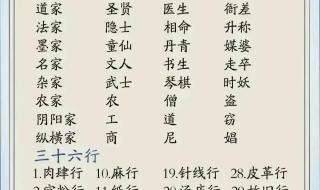 道家 圣贤 医生 衙差
法家 隐士 相命 升称
墨家 童仙 丹青 媒婆
名家 文人 书生 走卒
杂家 武士 琴棋 时妖
农家 农 僧 盗
阴阳家 工 道 窃
纵横家 商 尼 娼
三十六行
1.肉肆行 10.麻行 19.针线行 28.皮革行